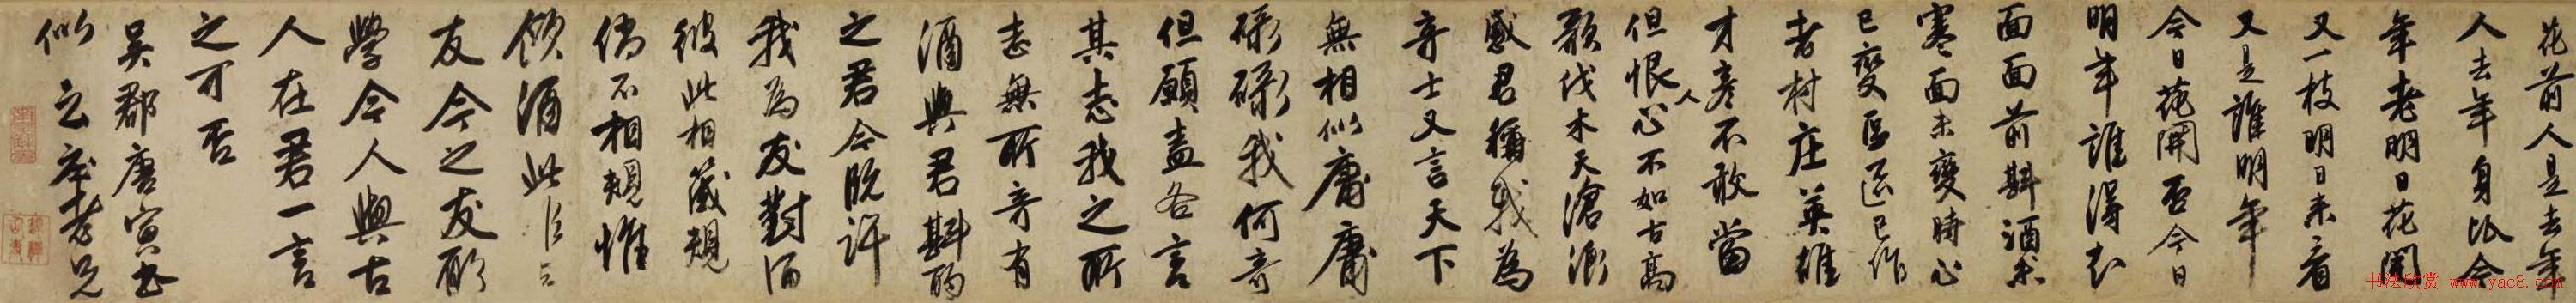 花前人是去年
人去年身比今
年老明日花開
又一枝明日来看
又是誰明年
今日花開否今日
明年誰得知
面面前斟酒未
寒面未變時心
已變區區已作
老村庄英雄
才彥不敢當
但恨人心不如古高
歌伐木天滄浪
感君稱我為
奇士又言天下
無相似庸庸
碌碌我何奇
但願盡各言
其志我之所
志無所奇有
酒與君斟酌
之君今既許
我為友對酒
彼此相箴規
倘不相規惟
領酒此
友今之友那
學今人與古
人在君一言
之可否
吳郡唐寅書
似 老兄
书法欣赏 www.yac8.com